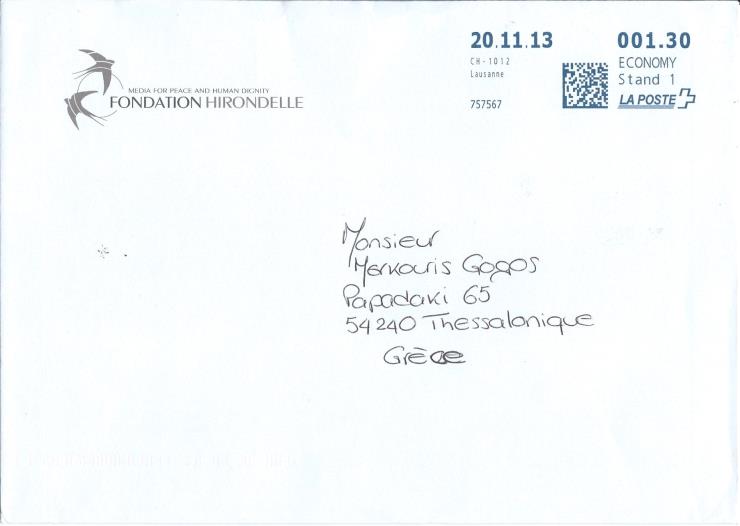 20.11.13
CH-1012
Lausanne
757567
001.30
ECONOMY
Stand 1
LA POSTE
MEDIA FOR PEACE AND HUMAN DIGNITY
FONDATION HIRONDELLE
Monsieur
Merkouris Gogos
Papadaki 65
54240 Thessalonique
Grèce